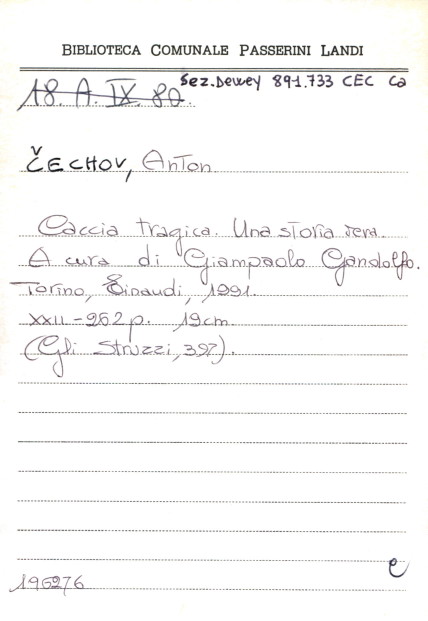 BIBLIOTECA COMUNALE PASSERINI LANDI
Sez.Dewey 891.733 CEC Ca
18. A. IX. 80.
ČECHOV, Anton
Caccia tragica. Una storia vera.
A cura di Giampaolo Gandolfo.
Torino, Einaudi, 1991.
XXII-262 p. 19cm.
(Gli Struzzi, 397).
e
196276